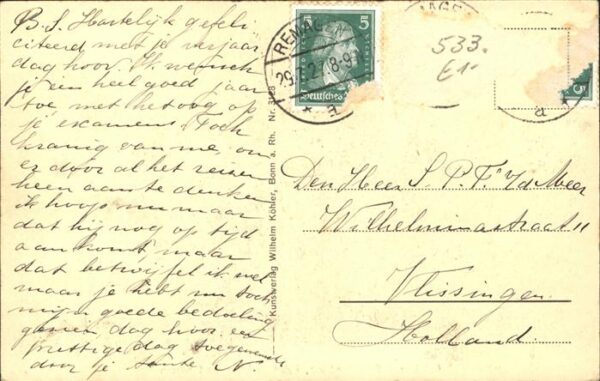 B. S. Hartelijk gefeli
citeerd met je verjaar
dag hoor. Ik wensch
je een heel goed jaar
toe met het oog op
je examens. Toch
kranig van me, om
er door al het reizen
heen aan te denken
ik hoop nu maar
dat hij nog op tijd
aan komt, maar
dat betwijfel ik wel
maar je hebt nu toch
mijn goede bedoeling
hoor. een
prettige dag toegewenscht
door je tante N.
Kunstverlag Wilhelm Köhler, Bonn a. Rh. Nr. 3168
REMAG
29. 27 8-9
5 5
Deutsches
533.
E1-
5
Den Heer S. P. T. v/d Meer
Wilhelminastraat 11
Vlissingen
Holland.